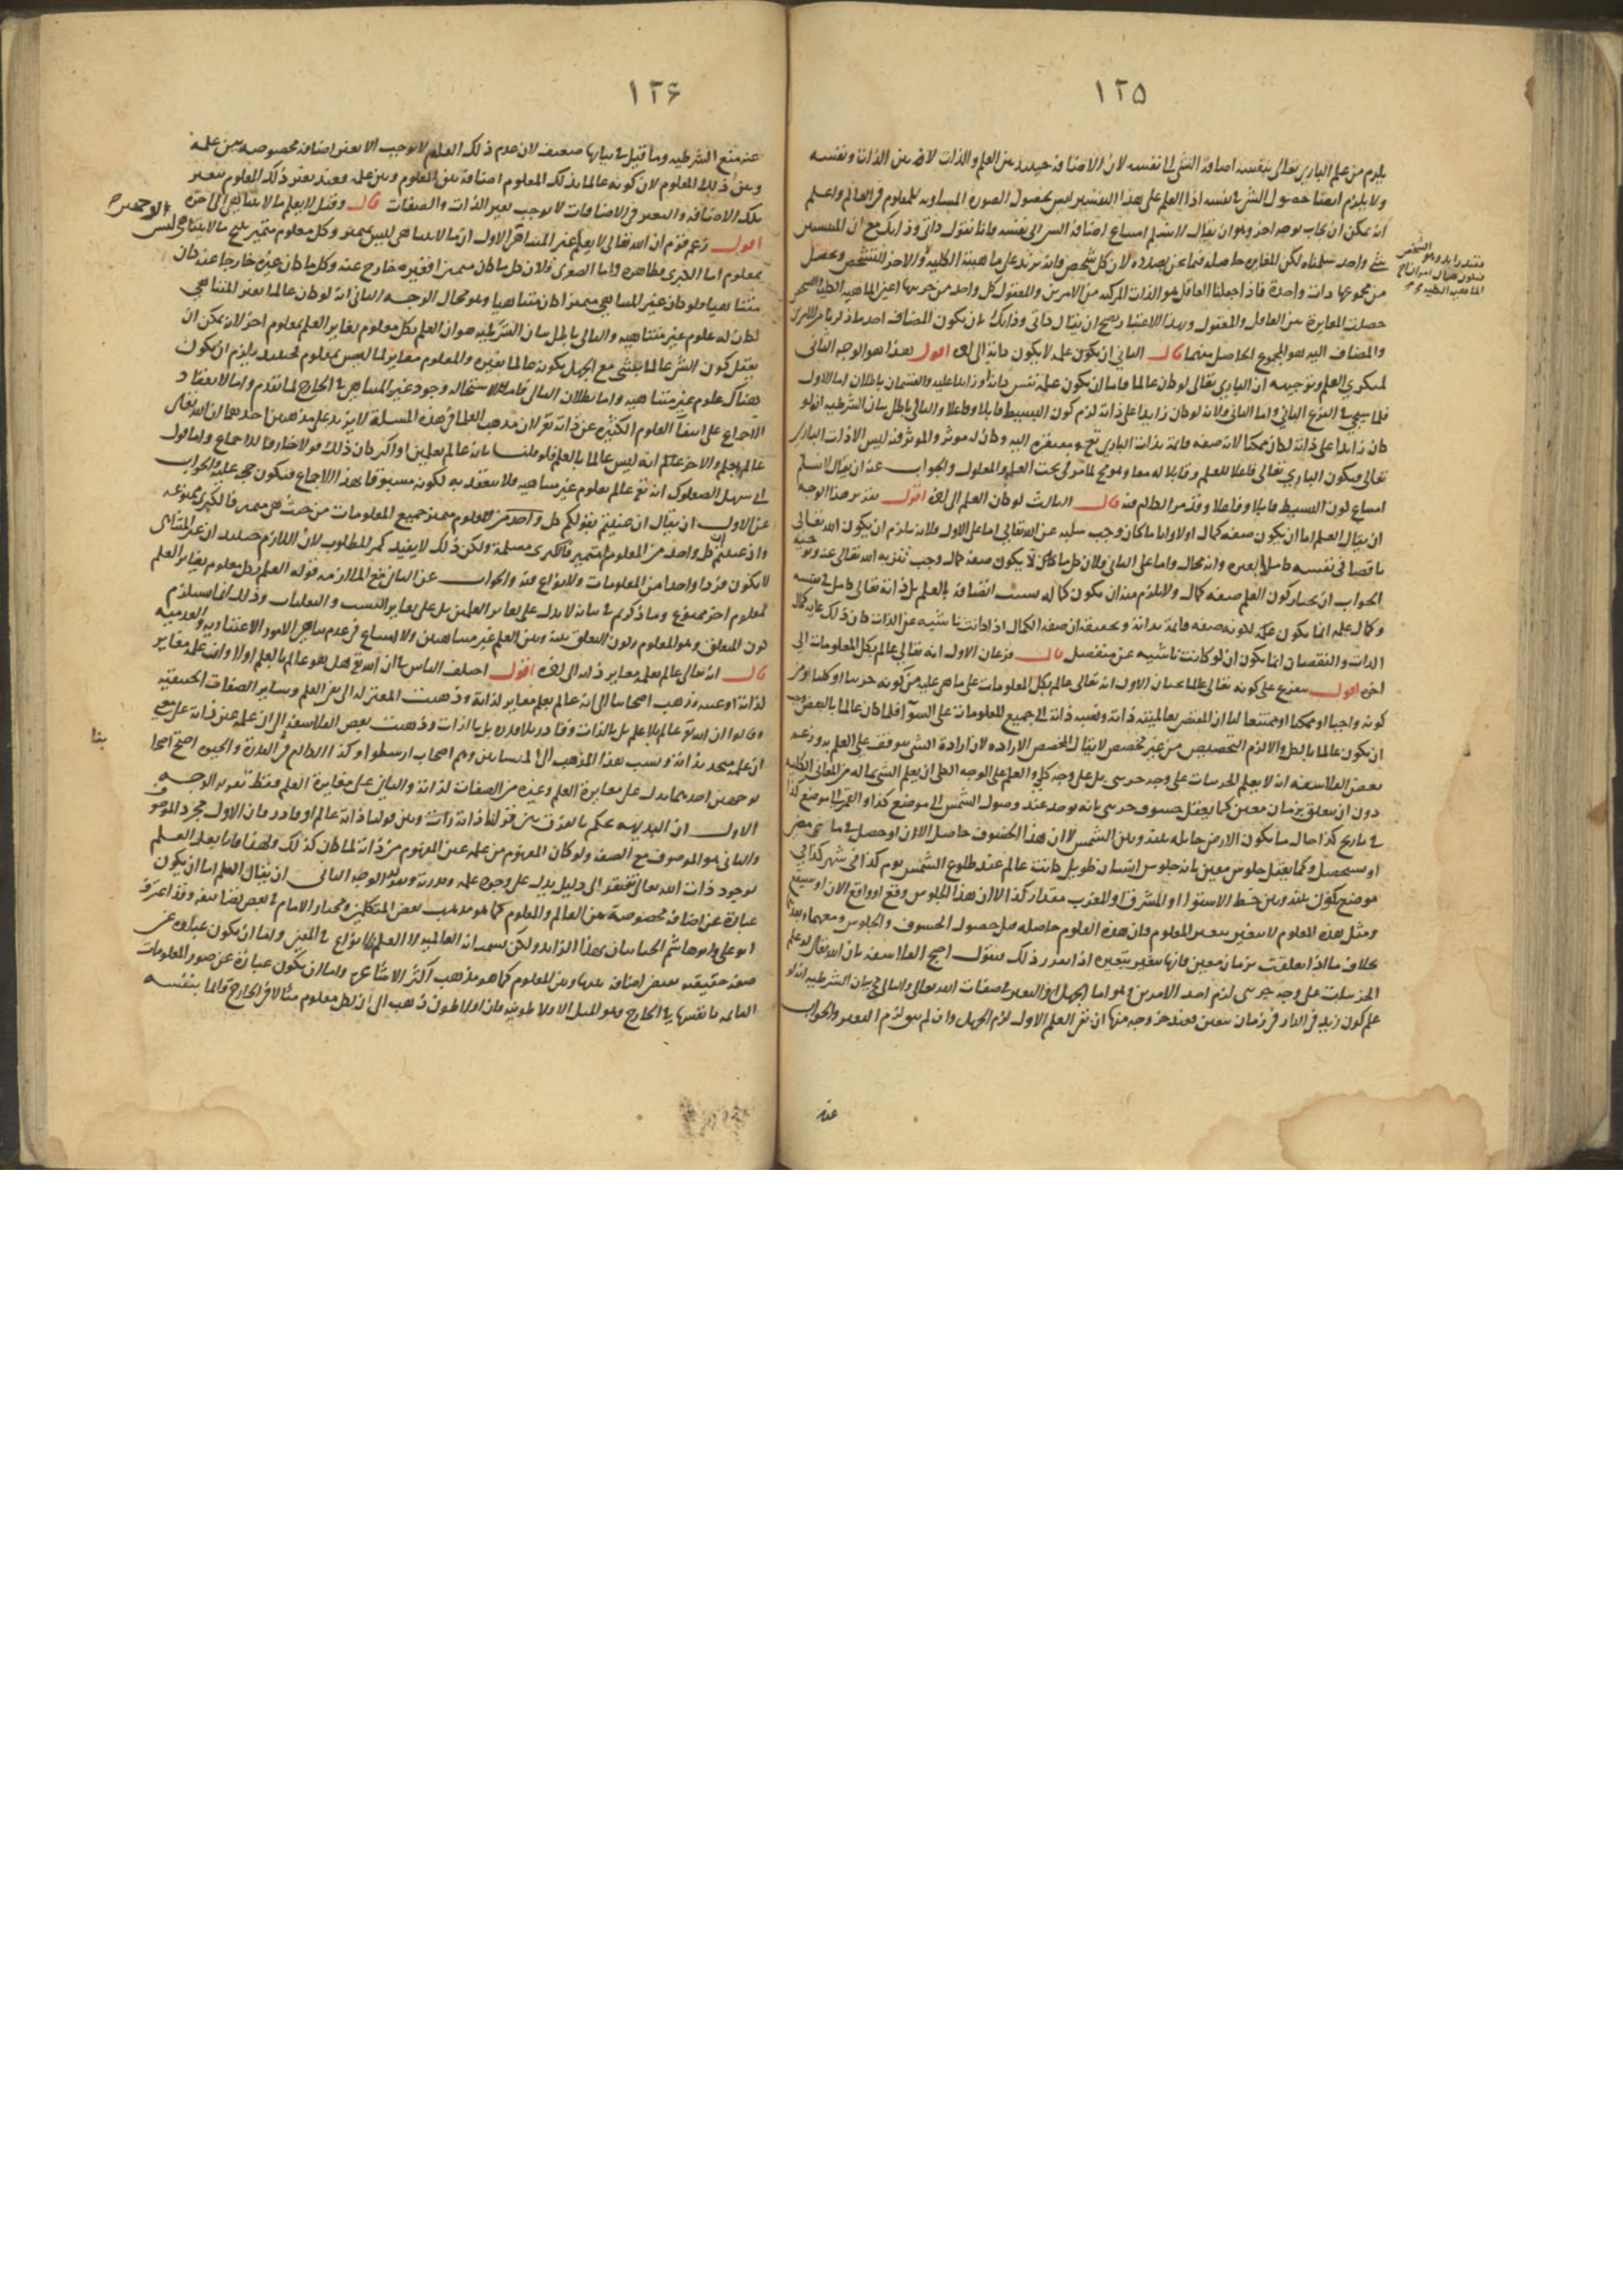 ١٢۵
يلزم من علم الباري تعالى بنفسه اضافة الشئ الى نفسه لان الاضافة حينئذ بين العلم والذات لا بين الذات ونفسه
ولا يلزم ايضا حصول الشئ في نفسه اذ العلم على هذا التفسير ليس بحصول الصورة المساوية للمعلوم في العالم واعلم
انه يمكن ان يجاب بوجه اخر وهو ان يقال لا نسلم امتناع اضافة الشئ الى نفسه فانا نقول ذاتي وذاتك مع ان المضاف
شئ واحد سلمناه لكن المغايرة حاصلة فيما نحن بصدده لان كل شخص فانه يزيد على ماهيته الكلية والاخر التشخص ويحصل
من مجموعها ذات واحدة فاذا جعلنا العاقل هو الذات المركبة من الامرين والمعقول كل واحد من جزئيها اعني الماهية الكلية والتشخص
حصلت المغايرة بين العاقل والمعقول وبهذا الاعتبار يصح ان يقال ذاتي وذاتك بان يكون المضاف احد ما ذكرنا من الامرين
والمضاف اليه هو المجموع الحاصل منهما قال الثاني ان يكون علمه لا يكون ذاته الى اخره اقول هذا هو الوجه الثاني
لمنكري العلم وتوجيهه ان الباري تعالى لو كان عالما فاما ان يكون علمه نفس ذاته او زايدا عليه والقسمان باطلان اما الاول
فلما سيجئ في الفرع الثاني واما الثاني فلانه لو كان زايدا على ذاته لزم كون البسيط قابلا وفاعلا والتالي باطل بيان الشرطية انه لو
كان زايدا على ذاته لكان ممكنا لانه صفة قائمة بذات الباري تع ومفتقرة اليه وكان له موثر والموثر فيه ليس الا ذات الباري
تعالى فيكون الباري تعالى فاعلا للعلم وقابلا له معا وهو مح لما مر في بحث العلة والمعلول والجواب عنه ان يقال لا نسلم
امتناع كون البسيط قابلا وفاعلا وقد مر الكلام فيه قال الثالث لو كان العلم الى اخره اقول تقرير هذا الوجه
ان يقال العلم اما ان يكون صفة كمال اولا واياما كان وجب سلبه عن الله تعالى اما على الاول فلانه يلزم ان يكون الله تعالى
ناقصا في نفسه كاملا بغيره وانه محال واما على الثاني فلان كل ما كان لا يكون صفة كمال وجب تنزيه الله تعالى عنه
الجواب ان نختار كون العلم صفة كمال ولا يلزم منه ان يكون كماله بسبب اتصافه بالعلم بل ذاته تعالى كامل في نفسه
وكمال علمه انما يكون علمه لكونه صفة قائمة بذاته وتحقيقه ان صفة الكمال اذا كانت ناشية عن الذات كان ذلك غاية كمال
الذات والنقصان انما يكون ان لو كانت ناشية عن منفصل قال فرعان الاول انه تعالى عالم بكل المعلومات الى
اخره اقول تفرع على كونه تعالى عالما بحثان الاول انه تعالى عالم بكل المعلومات على ما هي عليه من كونه جزئيا او كليا او من
كونه واجبا او ممكنا او ممتنعا لنا ان المقتضي لعالميته ذاته ونسبة ذاته الى جميع المعلومات على السوآء فلما كان عالما بالبعض وجب
ان يكون عالما بالكل والا لزم التخصيص من غير مخصص لا يقال المخصص الارادة لان ارادة الشئ موقف على العلم به وزعم
بعض الفلاسفة انه لا يعلم الجزئيات على وجه جزئي بل على وجه كلي والعلم على الوجه الكلي ان يعلم الشئ بما له من المعاني الكلية
دون ان يتعلق بزمان معين كما يعقل خسوف جزئي بانه يوجد عند وصول الشمس الى موضع كذا والقمر الى موضع كذا
في تاريخ كذا حال ما يكون الارض حايلة بينه وبين الشمس لا ان هذا الخسوف حاصل الآن او حصل فيما مضى
او سيحصل وكما يعقل جلوس معين بانه جلوس انسان طويل كاتب عالم عند طلوع الشمس يوم كذا في شهر كذا في
موضع يكون بينه وبين خط الاستوا او المشرق او المغرب مقدار كذا لا ان هذا الجلوس وقع او واقع الآن او سيقع
ومثل هذه المعلوم لا يتغير بتغير المعلوم فان هذه العلوم حاصلة قبل حصول الخسوف والجلوس ومعهما وبعدهما
بخلاف ما اذا تعلقت بزمان معين فانها يتغير بتغيره اذا تقرر ذلك نقول احتج الفلاسفة بان الله تعالى لو علم
الجزئيات على وجه جزئي لزم احد الامرين وهو اما الجهل او التغير في صفات الله تعالى والتالي مح بيان الشرطية انه لو
علم كون زيد في الدار في زمان معين فعند خروجه منها ان بقي العلم الاول لزم الجهل وان لم يبق لزم التغير والجواب
عنه
١٢۶
عنه منع الشرطية وما قيل في بيانها ضعيف لان عدم ذلك العلم لا يوجب الا تغير اضافة مخصوصة بين علمه
وبين ذلك المعلوم لان كونه عالما بذلك المعلوم اضافة بين المعلوم وبين علمه وعند تغير ذلك المعلوم تتغير
تلك الاضافة والتغير في الاضافات لا يوجب تغير الذات والصفات قال وقيل لا يعلم ما لا يتناهى الى اخره
اقول زعم قوم ان الله تعالى لا يعلم غير المتناهي الاول ان ما لا يتناهى ليس بمتميز وكل معلوم متميز ينتج ما لا يتناهى ليس
بمعلوم اما الكبرى فظاهرة واما الصغرى فلان كل ما كان متميزا فغيره خارج عنه وكل ما كان غيره خارجا عنه كان
متناهيا فلو كان غير المتناهي متميزا كان متناهيا وهو محال الوجه الثاني انه لو كان عالما بغير المتناهي
لكان له علوم غير متناهية والتالي باطل بيان الشرطية هو ان العلم بكل معلوم يغاير العلم بمعلوم اخر لانه يمكن ان
يعقل كون الشئ عالما بشئ مع الجهل بكونه عالما بغيره والمعلوم مغاير لما ليس بمعلوم فحينئذ يلزم ان يكون
هناك علوم غير متناهية واما بطلان التالي فلاستحالة وجود غير المتناهي في الخارج لما تقدم واما لانعقاد
الاجماع على انتفآ العلوم الكثيرة عن ذاته تع لان مذهب العلما في هذه المسئلة لا يزيد على مذهبين احدهما ان الله تعالى
عالم بعلم والاخر انه ليس عالما بالعلم فلو قلنا بانه عالم بعلمين او اكثر كان ذلك قولا خارقا للاجماع واما قول
ابي سهل الصعلوكي انه تع عالم بعلوم غير متناهية فلا يعتد به لكونه مسبوقا بهذا الاجماع فيكون حجة عليه والجواب
عن الاول ان يقال ان عنيتم بقولكم كل معلوم متميز جميع المعلومات من حيث هي متميز فالكبرى ممنوعة
وان عنيتم كل واحد من المعلوم متميز فالكبرى مسلمة ولكن ذلك لا يفيدكم المطلوب لان اللازم حينئذ ان غير المتناهي
لا يكون فردا واحدا من المعلومات ولا نزاع فيه والجواب عن الثاني منع الملازمة قوله العلم بكل معلوم يغاير العلم
بمعلوم اخر ممنوع وما ذكرتم في بيانه لا يدل على تغاير العلمين بل على تغاير النسب والتعلقات وذلك انما يستلزم
كون المتعلق وهو المعلوم وكون التعلق بينه وبين العلم غير متناهيين ولا امتناع في عدم تناهي الامور الاعتبارية والعدمية
قال انه تعالى عالم بعلم مغاير ذاته الى اخره اقول اختلف الناس في ان الله تع هل هو عالم بالعلم اولا وان علمه مغاير
لذاته او عينه وذهب اصحابنا الى انه عالم بعلم مغاير لذاته وذهبت المعتزلة الى نفي العلم وسائر الصفات الحقيقية
وقالوا ان الله تع عالم بلا علم بل بالذات وقادر بلا قدرة بل بالذات وذهبت بعض الفلاسفة الى ان علمه عين ذاته على معنى
ان علمه متحد بذاته ونسب هذا المذهب الى المشائين وهم اصحاب ارسطو وكذا الكلام في القدرة والحيوة احتج اصحابنا
بنا
بوجهين احدهما يدل على مغايرة العلم وغيره من الصفات لذاته والثاني على مغايرة العلم فقط تقرير الوجه
الاول ان البديهة تحكم بالفرق بين قولنا ذاته ذات وبين قولنا ذاته عالم او قادر فان الاول مجرد الموصوف
والثاني هو الموصوف مع الصفة ولو كان المفهوم من علمه عين المفهوم من ذاته لما كان كذلك ولهذا فانا بعد العلم
بوجود ذات الله تعالى نفتقر الى دليل يدل على وجود علمه وقدرته وتقرير الوجه الثاني ان يقال العلم اما ان يكون
عبارة عن اضافة مخصوصة بين العالم والمعلوم كما هو مذهب بعض المتكلمين ومختار الامام في بعض تصانيفه وقد اعترف
ابو علي وابو هاشم الجبائيان بهذا الزايد ولكن يسميانه العالمية لا العلم فلا نزاع في المعنى واما ان يكون عبارة عن
صفة حقيقية تقتضي اضافة بينها وبين المعلوم كما هو مذهب اكثر الاشاعرة واما ان يكون عبارة عن صور المعلومات
القائمة بانفسها في الخارج وهو المثل الافلاطونية فان افلاطون ذهب الى ان لكل معلوم مثالا في الخارج قائما بنفسه